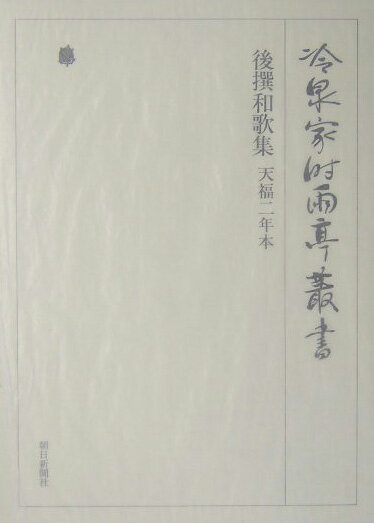 冷泉家时雨亭叢書
後撰和歌集 天福二年本
朝日新聞社